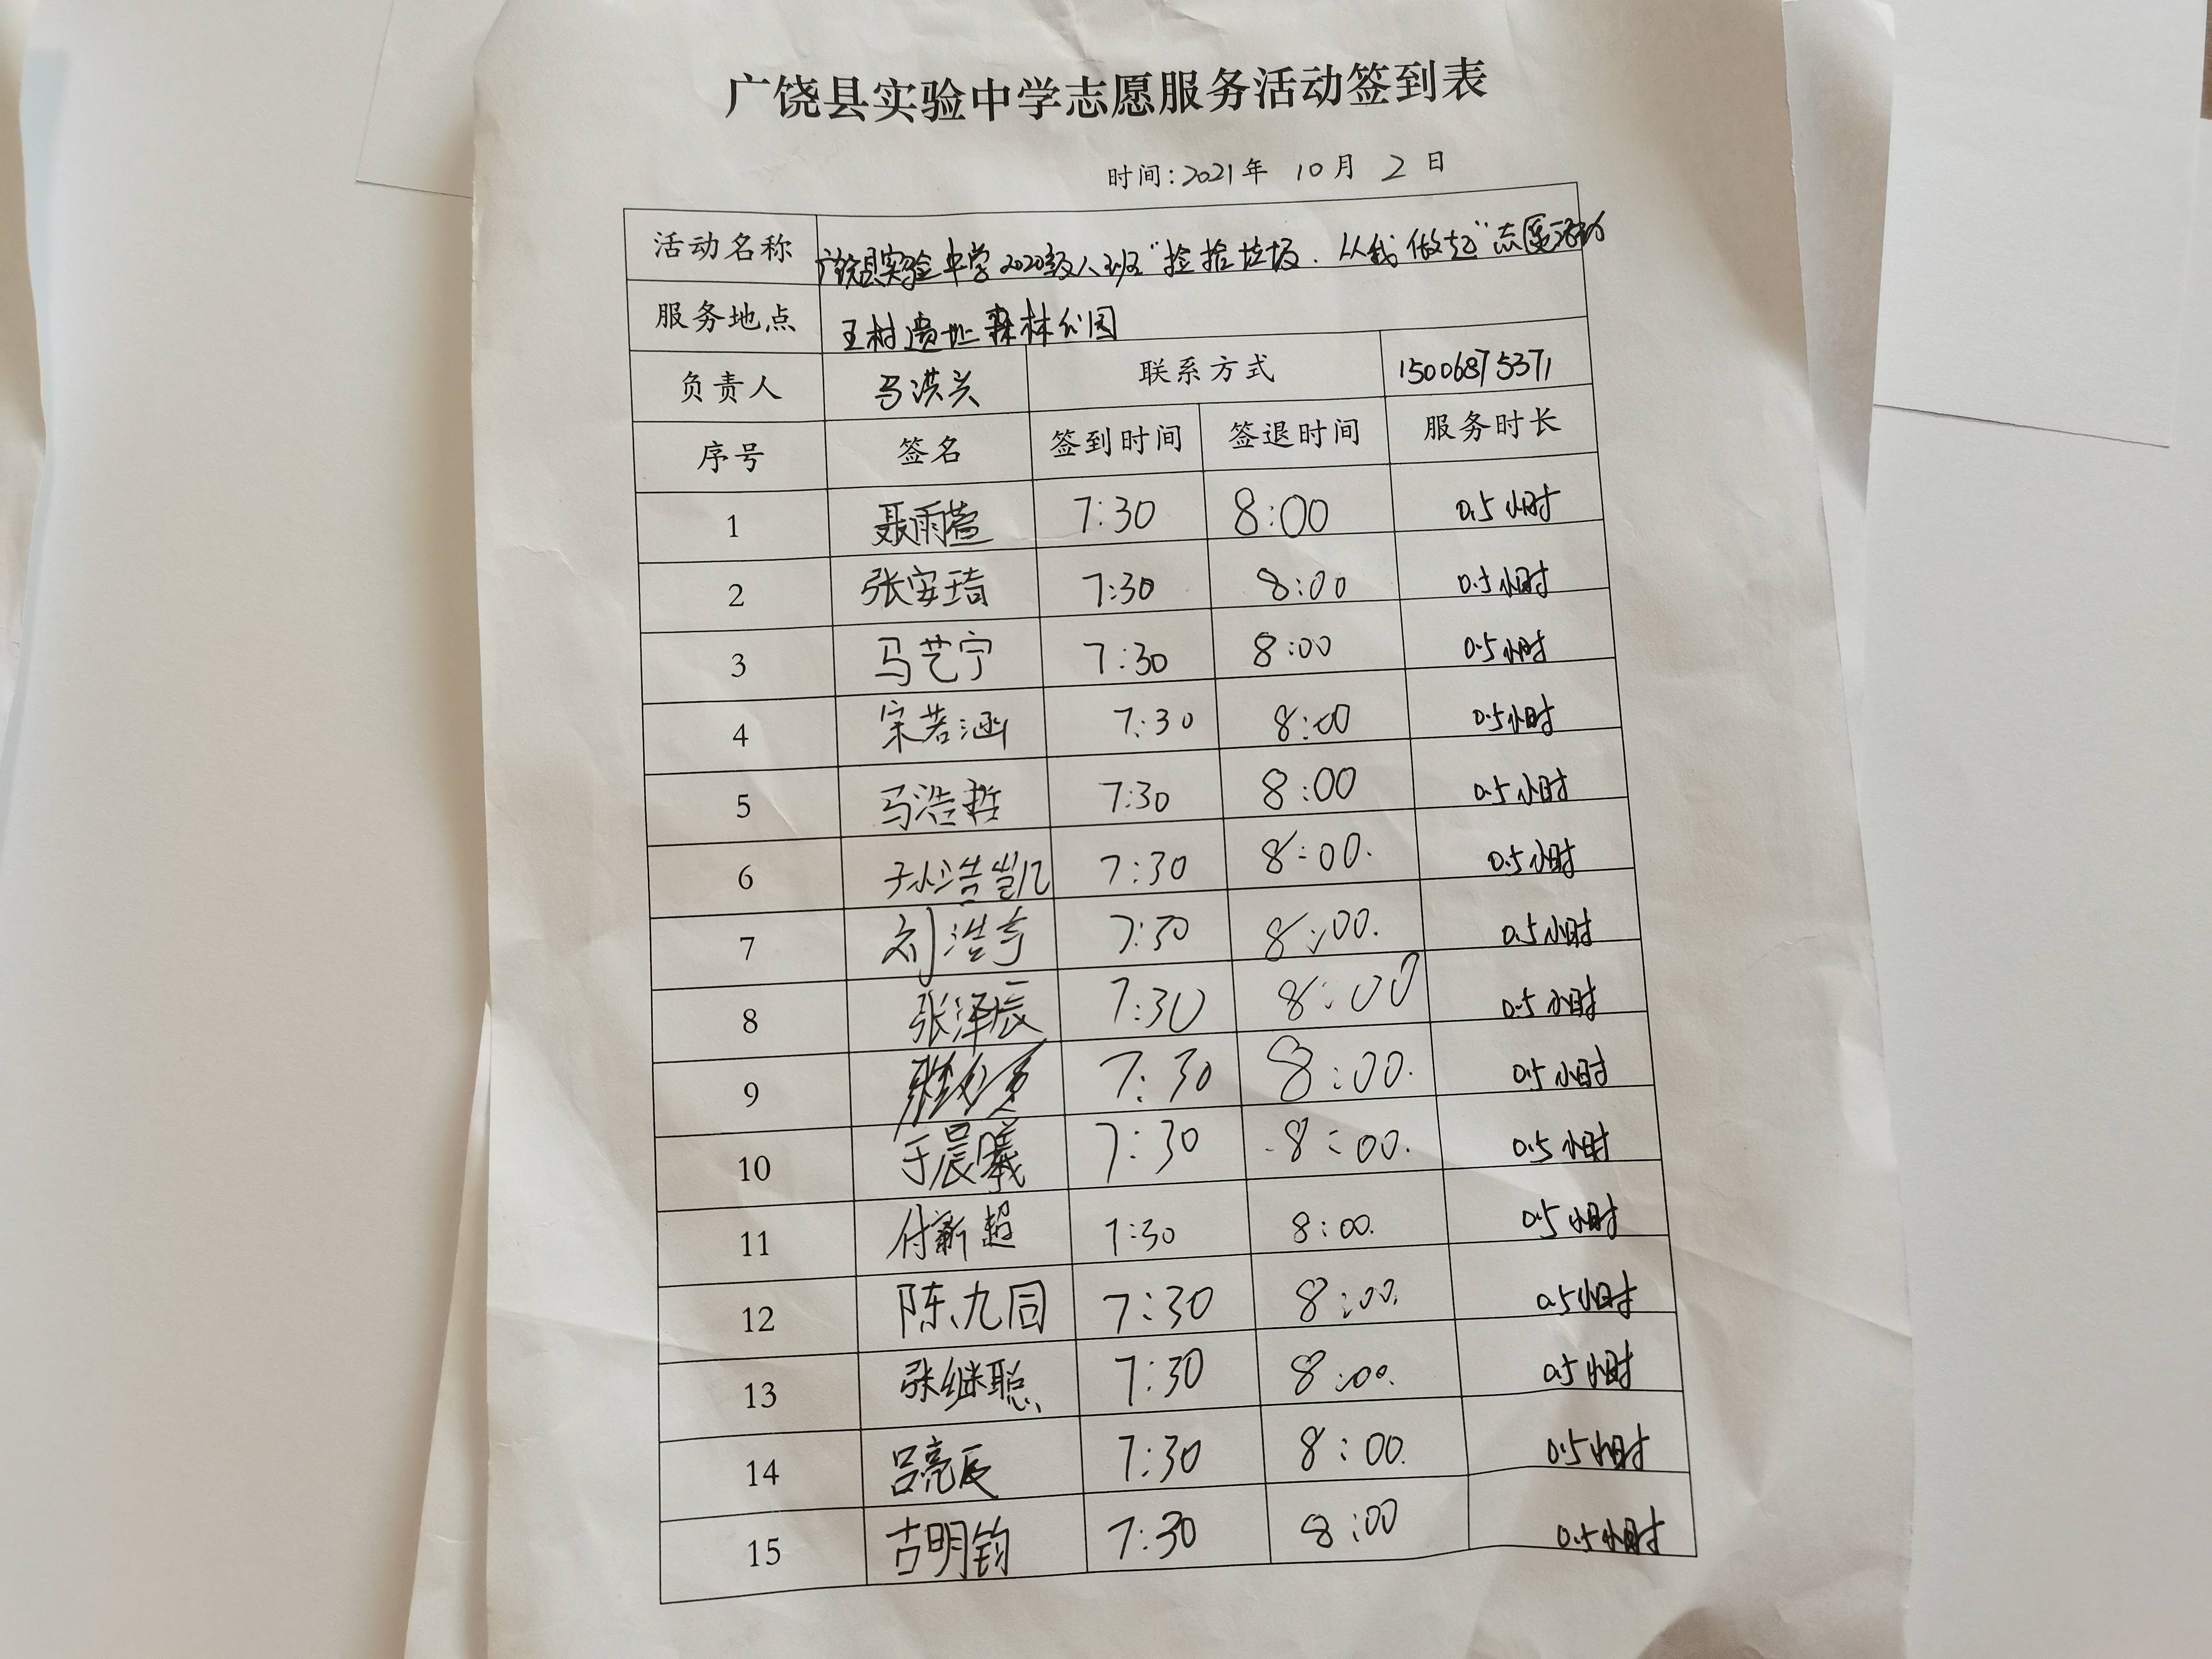 广饶县实验中学志愿服务活动签到表
时间:2021年 10月 2日
活动名称 广饶县实验中学2020级八班"捡拾垃圾.从我做起"志愿活动
服务地点 王村遗址森林公园
负责人 马洪兴 联系方式 15006875371
序号 签名 签到时间 签退时间 服务时长
1 聂雨萱 7:30 8:00 0.5小时
2 张安琦 7:30 8:00 0.5小时
3 马艺宁 7:30 8:00 0.5小时
4 宋若涵 7:30 8:00 0.5小时
5 马浩哲 7:30 8:00 0.5小时
6 孙浩凯 7:30 8:00. 0.5小时
7 刘浩宇 7:30 8:00. 0.5小时
8 张泽辰 7:30 8:00 0.5小时
9 7:30 8:00. 0.5小时
10 于晨曦 7:30 8:00. 0.5小时
11 付新超 7:30 8:00. 0.5小时
12 陈九同 7:30 8:00. 0.5小时
13 张继聪 7:30 8:00. 0.5小时
14 吕亮辰 7:30 8:00. 0.5小时
15 古明钧 7:30 8:00 0.5小时